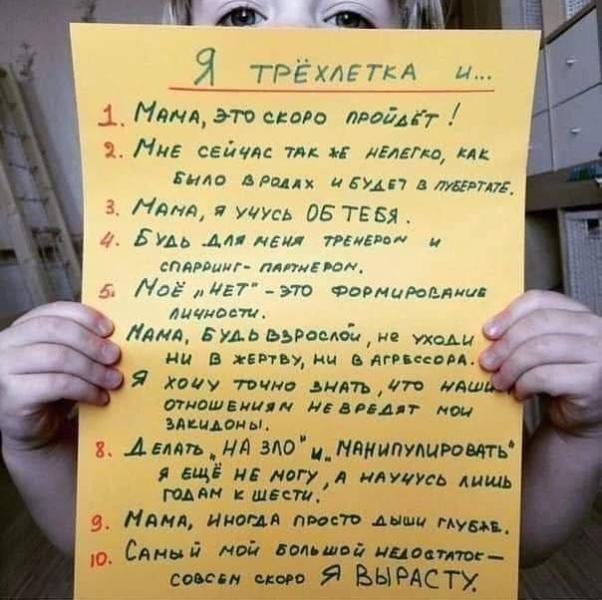 Я ТРЁХЛЕТКА И...
1. МАМА, ЭТО СКОРО ПРОЙДЁТ!
2. МНЕ СЕЙЧАС ТАК ЖЕ НЕЛЕГКО, КАК
БЫЛО В РОДАХ И БУДЕТ В ПУБЕРТАТЕ.
3. МАМА, Я УЧУСЬ ОБ ТЕБЯ.
4. БУДЬ ДЛЯ МЕНЯ ТРЕНЕРОМ И
СПАРРИНГ-ПАРТНЕРОМ.
5. МОЁ „НЕТ" - ЭТО ФОРМИРОВАНИЕ
ЛИЧНОСТИ.
МАМА, БУДЬ ВЗРОСЛОЙ, НЕ УХОДИ
НИ В ЖЕРТВУ, НИ В АГРЕССОРА.
Я ХОЧУ ТОЧНО ЗНАТЬ, ЧТО НАШИМ
ОТНОШЕНИЯМ НЕ ВРЕДЯТ МОИ
ЗАКИДОНЫ.
8. ДЕЛАТЬ „НА ЗЛО" И „МАНИПУЛИРОВАТЬ"
Я ЕЩЁ НЕ МОГУ, А НАУЧУСЬ ЛИШЬ
ГОДАМ К ШЕСТИ.
9. МАМА, ИНОГДА ПРОСТО ДЫШИ ГЛУБЖЕ.
10. САМЫЙ МОЙ БОЛЬШОЙ НЕДОСТАТОК —
СОВСЕМ СКОРО Я ВЫРАСТУ.